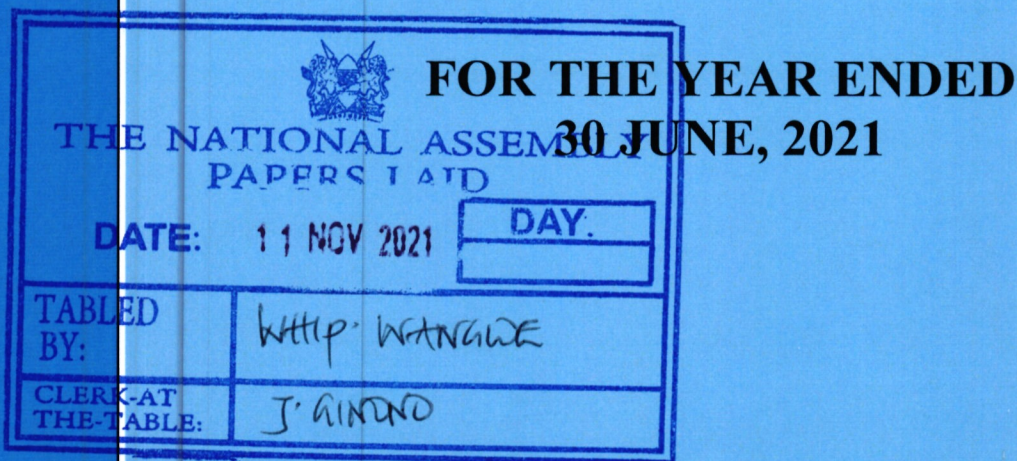 FOR THE YEAR ENDED
30 JUNE, 2021
THE NATIONAL ASSEMBLY
PAPERS LAID
DATE: 11 NOV 2021
DAY:
TABLED BY:
WHIP. WANGWE
CLERK-AT THE-TABLE: